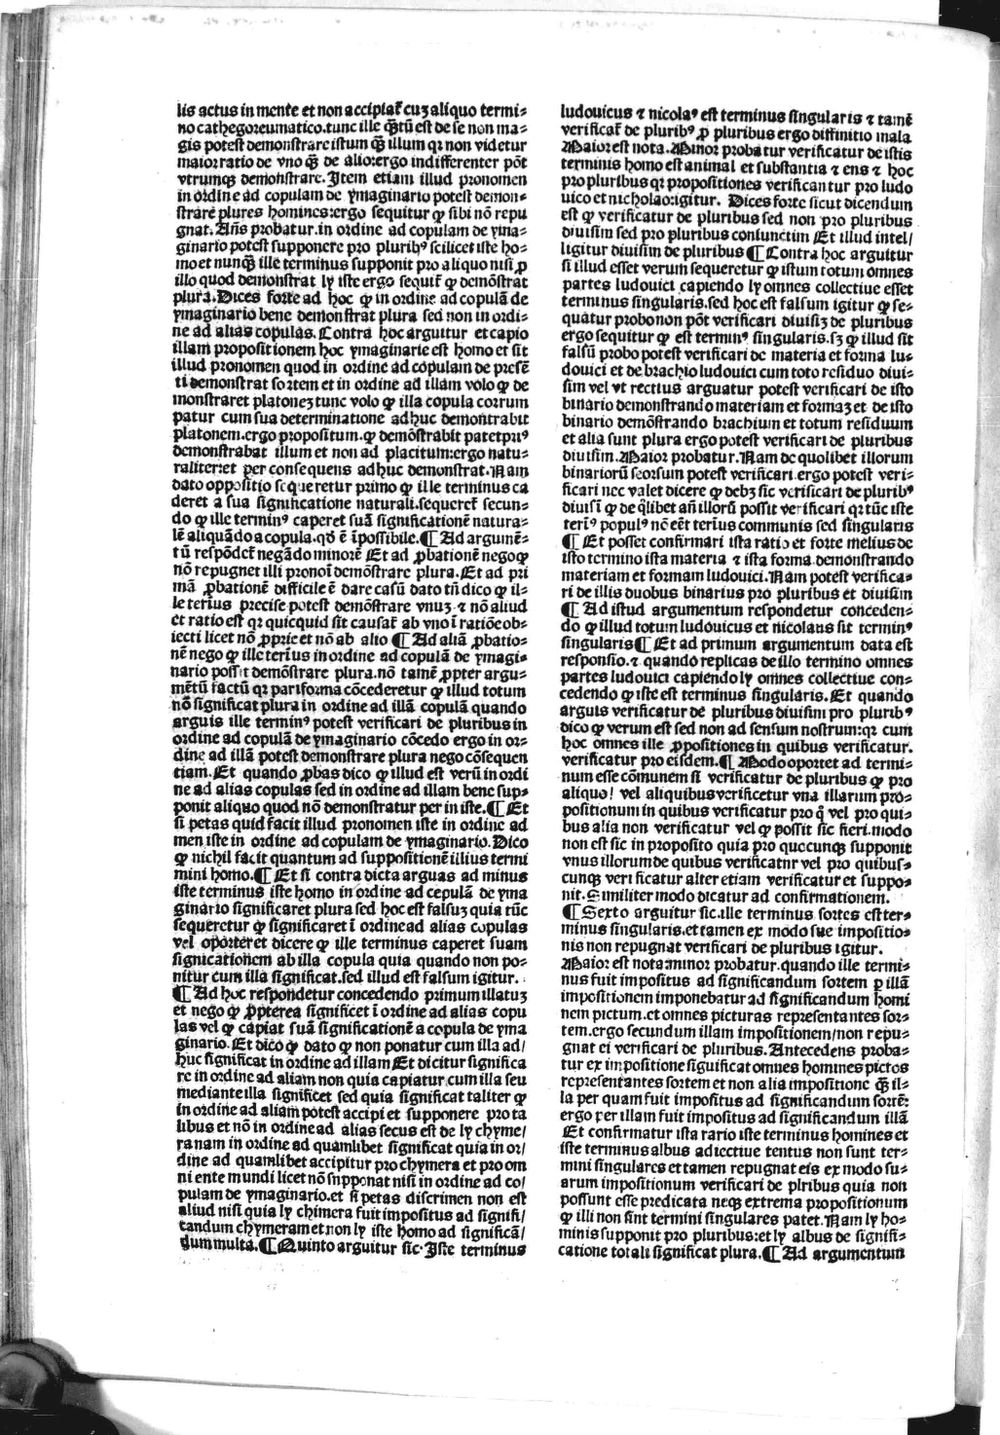 lis actus in mente et non accipiat᷑ cuȝ aliquo termi⸗
no cathegoreumatico.tunc ille q̄tū est de se non ma⸗
gis potest demonstrare istum q̄ illum qꝛ non videtur
maioꝛ ratio de vno q̄ de alio:ergo indifferenter pōt
vtrumqꝫ demonstrare. Item etiam illud pronomen
in ordine ad copulam de ymaginario potest demon⸗
strare plures homines:ergo sequitur ꝙ sibi nō repu
gnat. Añs probatur.in ordine ad copulam de yma⸗
ginario potest supponere pro pluribꝰ scilicet iste ho⸗
mo et nunqꝫ ille terminus supponit pro aliquo nisi ꝓ
illo quod demonstrat ly iste ergo sequit᷑ ꝙ demōstrat
plura.Dices forte ad hoc ꝙ in ordine ad copulā de
ymaginario bene demonstrat plura sed non in ordi⸗
ne ad alias copulas. Contra hoc arguitur et capio
illam propositionem hoc ymaginarie est homo et sit
illud pronomen quod in ordine ad copulam de presē
ti demonstrat sortem et in ordine ad illam volo ꝙ de
monstraret platoneȝ tunc volo ꝙ illa copula corrum
patur cum sua determinatione adhuc demontrabit
platonem.ergo propositum.ꝙ demōstrabit patet pꝛiꝰ
demonstrabat illum et non ad placitum:ergo natu⸗
raliter:et per consequens adhuc demonstrat. Nam
dato oppositio sequeretur primo ꝙ ille terminus ca
deret a sua significatione naturali.sequeret᷑ secun⸗
do ꝙ ille terminꝰ caperet suā significationē natura⸗
lē aliquādo a copula.qđ ē īpossibile.¶ Ad argumē⸗
tū respōdet᷑ negādo minorē Et ad ꝓbationē nego ꝙ
nō repugnet illi pronoī demōstrare plura.Et ad pri
mā ꝓbationē difficile ē dare casū dato tn̄ dico ꝙ il⸗
le teriᷤus precise potest demōstrare vnuȝ ⁊ nō aliud
et ratio est qꝛ quicquid sit causat᷑ ab vno ī ratiōe ob⸗
iecti licet nō ꝓprie et nō ab alio ¶ Ad aliā ꝓbatio⸗
nē nego ꝙ ille teriᷤus in ordine ad copulā de ymagi⸗
nario possit demōstrare plura.nō tamē ꝓpter argu⸗
mētū factū qꝛ pariforma cōcederetur ꝙ illud totum
nō significat plura in ordine ad illā copulā quando
arguis ille terminꝰ potest verificari de pluribus in
ordine ad copulā de ymaginario cōcedo ergo in or⸗
dine ad illā potest demōstrare plura nego cōsequen
tiam. Et quando ꝓbas dico ꝙ illud est verū in ordi
ne ad alias copulas sed in ordine ad illam bene sup⸗
ponit aliquo quod nō demonstratur per in iste.¶ Et
si petas quid facit illud pronomen iste in ordine ad
men iste in ordine ad copulam de ymaginario. Dico
ꝙ nichil facit quantum ad suppositionē illius termi
mini homo.¶ Et si contra dicta arguas ad minus
iste terminus iste homo in ordine ad cepulā de yma
ginario significaret plura sed hoc est falsuȝ quia tūc
sequeretur ꝙ significaret ī ordine ad alias copulas
vel oporteret dicere ꝙ ille terminus caperet suam
signicationem ab illa copula quia quando non po⸗
nitur cum illa significat.sed illud est falsum igitur.
¶ Ad hoc respondetur concedendo primum illatuȝ
et nego ꝙ ꝓpterea significet ī ordine ad alias copu
las vel ꝙ capiat suā significationē a copula de yma
ginario. Et dico ꝙ dato ꝙ non ponatur cum illa ad/
huc significat in ordine ad illam Et dicitur significa
re in ordine ad aliam non quia capiatur cum illa seu
mediante illa significet sed quia significat taliter ꝙ
in ordine ad aliam potest accipi et supponere pro ta
libus et nō in ordine ad alias secus est de ly chyme/
ra nam in ordine ad quamlibet significat quia in or/
dine ad quamlibet accipitur pro chymera et pro om
ni ente mundi licet nō supponat nisi in ordine ad co/
pulam de ymaginario.et si petas discrimen non est
aliud nisi quia ly chimera fuit impositus ad signifi/
candum chymeram et non ly iste homo ad significā/
dum multa.¶ Quinto arguitur sic. Iste terminus
ludouicus ⁊ nicolaꝰ est terminus singularis ⁊ tamē
verificat᷑ de pluribꝰ ꝓ pluribus ergo diffinitio mala
Maior est nota. Minor probatur verificatur de istis
terminis homo est animal et substantia ⁊ ens ⁊ hoc
pro pluribus qꝛ propositiones verificantur pro ludo
uico et nicholao:igitur. Dices forte sicut dicendum
est ꝙ verificatur de pluribus sed non pro pluribus
diuisim sed pro pluribus coniunctim Et illud intel/
ligitur diuisim de pluribus ¶ Contra hoc arguitur
si illud esset verum sequeretur ꝙ istum totum omnes
partes ludouici capiendo ly omnes collectiue esset
terminus singularis.sed hoc est falsum igitur ꝙ se⸗
quatur probo non pōt verificari diuisiȝ de pluribus
ergo sequitur ꝙ est terminꝰ singularis.sȝ ꝙ illud sit
falsū probo potest verificari de materia et forma lu⸗
douici et de brachio ludouici cum toto residuo diui⸗
sim vel vt rectius arguatur potest verificari de isto
binario demonstrando materiam et formaȝ et de isto
binario demōstrando brachium et totum residuum
et alia sunt plura ergo potest verificari de pluribus
diuisim. Maior probatur. Nam de quolibet illorum
binariorū seorsum potest verificari.ergo potest veri⸗
ficari nec valet dicere ꝙ debȝ sic verificari de pluribꝰ
diuisī ꝙ de q̄libet añ illorū possit verificari qꝛ tūc iste
terīꝰ populꝰ nō eēt teriᷤus communis sed singularis
¶ Et posset confirmari ista ratio et forte melius de
isto termino ista materia ⁊ ista forma demonstrando
materiam et formam ludouici. Nam potest verifica⸗
ri de illis duobus binarius pro pluribus et diuisim
¶ Ad istud argumentum respondetur conceden⸗
do ꝙ illud totum ludouicus et nicolaus sit terminꝰ
singularis ¶ Et ad primum argumentum data est
responsio.⁊ quando replicas de illo termino omnes
partes ludouici capiendo ly omnes collectiue con⸗
cedendo ꝙ iste est terminus singularis. Et quando
arguis verificatur de pluribus diuisim pro pluribꝰ
dico ꝙ verum est sed non ad sensum nostrum:qꝛ cum
hoc omnes ille ꝓpositiones in quibus verificatur.
verificatur pro eisdem.¶ Modo oportet ad termi⸗
num esse cōmunem si verificatur de pluribus ꝙ pro
aliquo/ vel aliquibus verificetur vna illarum pro⸗
positionum in quibus verificatur pro q̄ vel pro qui⸗
bus alia non verificatur vel ꝙ possit sic fieri.modo
non est sic in proposito quia pro quocunqꝫ supponit
vnus illorum de quibus verificatur vel pro quibus⸗
cunqꝫ verificatur alter etiam verificatur et suppo⸗
nit. Similiter modo dicatur ad confirmationem.
¶ Sexto arguitur sic.ille terminus sortes est ter⸗
minus singularis.et tamen ex modo sue impositio⸗
nis non repugnat verificari de pluribus igitur.
Maior est nota:minor probatur.quando ille termi⸗
nus fuit impositus ad significandum sortem ꝑ illā
impositionem imponebatur ad significandum homi
nem pictum.et omnes picturas representantes sor⸗
tem.ergo secundum illam impositionem/non repu⸗
gnat ei verificari de pluribus. Antecedens proba⸗
tur ex impositione significat omnes homines pictos
representantes sortem et non alia impositione q̄ il⸗
la per quam fuit impositus ad significandum sortē:
ergo per illam fuit impositus ad significandum illā
Et confirmatur ista rario iste terminus homines et
iste terminus albus adiectiue tentus non sunt ter⸗
mini singulares et tamen repugnat eis ex modo su⸗
arum impositionum verificari de plribus quia non
possunt esse predicata neqꝫ extrema propositionum
ꝙ illi non sint termini singulares patet. Nam ly ho⸗
minis supponit pro pluribus:et ly albus de signifi⸗
catione totali significat plura.¶ Ad argumentum